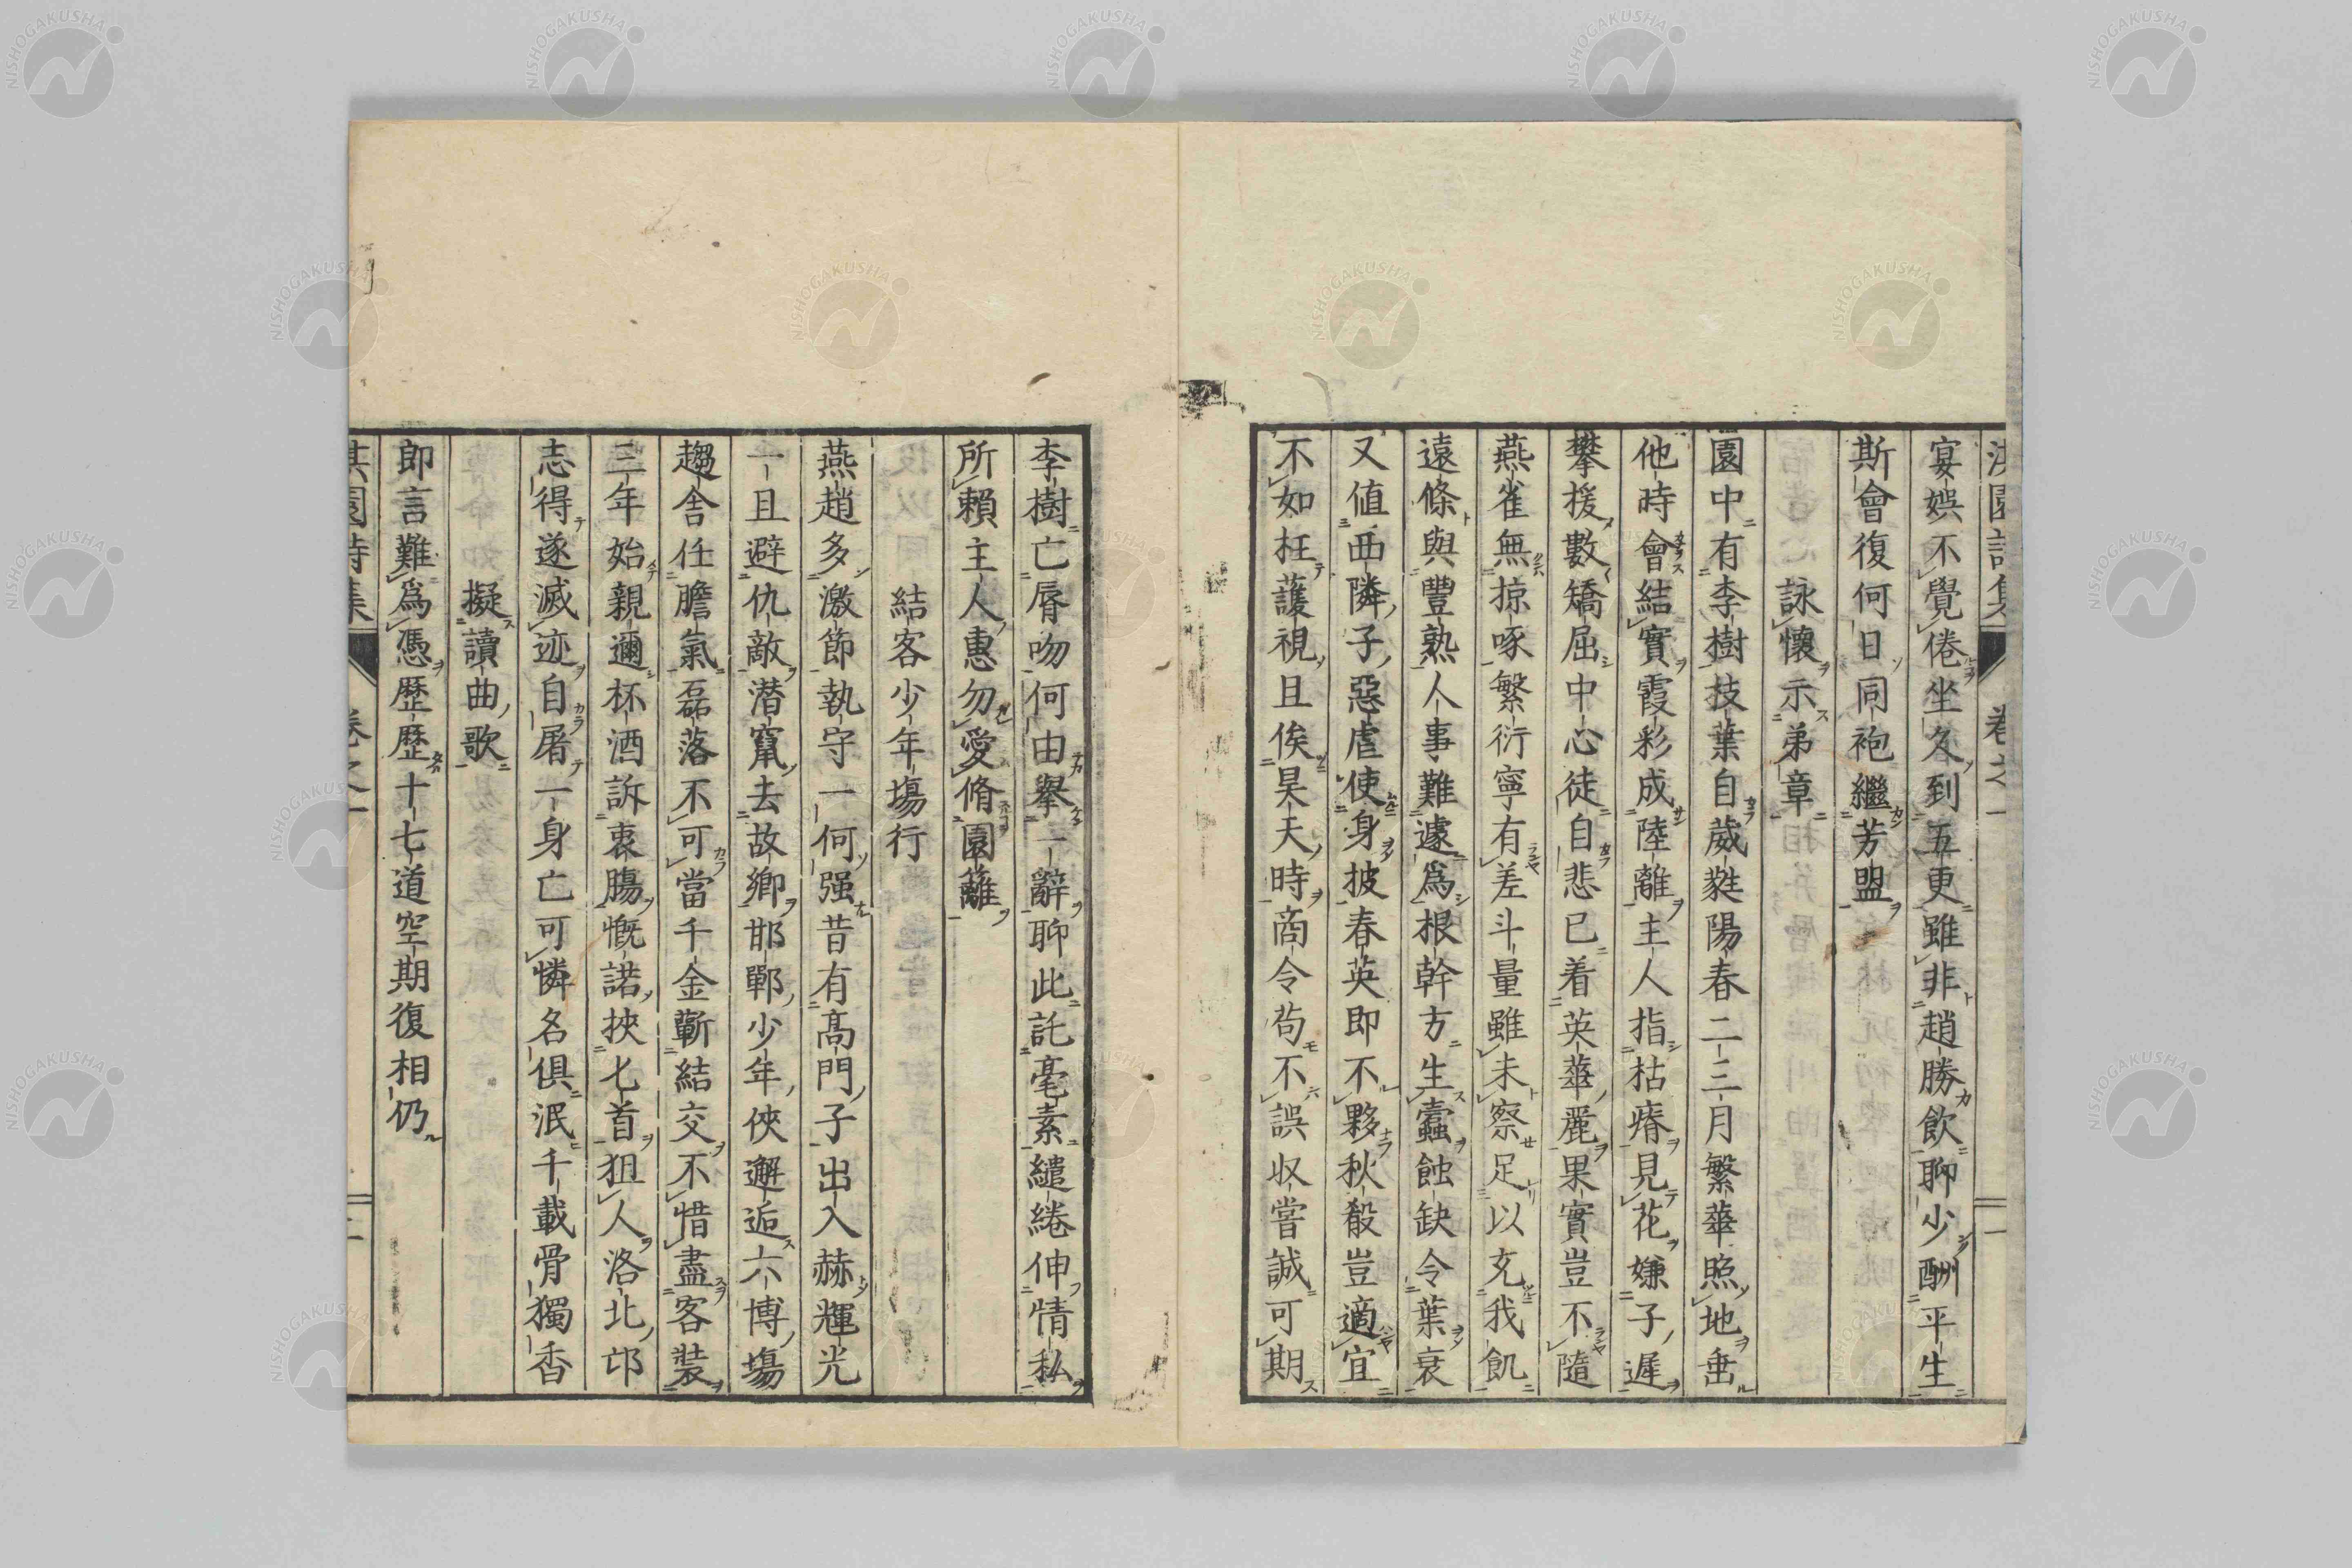 淇園詩集 卷之一 一
宴娯不覺倦坐久到五更雖非趙勝飲聊少酬平生
斯會復何日同袍繼芳盟
詠懷示弟章
園中有李樹技葉自葳蕤陽春二三月繁華照地垂
他時會結實霞彩成陸離主人指枯瘠見花嫌子遲
攀援數矯屈中心徒自悲已着英華麗果實豈不隨
燕雀無掠啄繁衍寧有差斗量雖未察足以充我飢
遠條與豐熟人事難遽爲根幹方生蠹蝕缺令葉衰
又値西隣子惡虐使身披春英即不夥秋殽豈適宜
不如枉護視且俟昊天時商令苟不誤收嘗誠可期
李樹亡脣吻何由擧一辭聊此託毫素繾綣伸情私
所賴主人惠勿愛脩園籬
結客少年場行
燕趙多激節執守一何强昔有高門子出入赫輝光
一旦避仇敵潜竄去故鄉邯鄲少年俠邂逅六博場
趨舎任膽氣磊落不可當千金蘄結交不惜盡客裝
三年始親邇杯酒訴衷膓慨諾挾匕首狙人洛北邙
志得遂滅迹自屠一身亡可憐名俱泯千載骨獨香
擬讀曲歌
即言難爲憑歴歴十七道空期復相仍
淇園詩集 卷之一 二
NISHOGAKUSHA